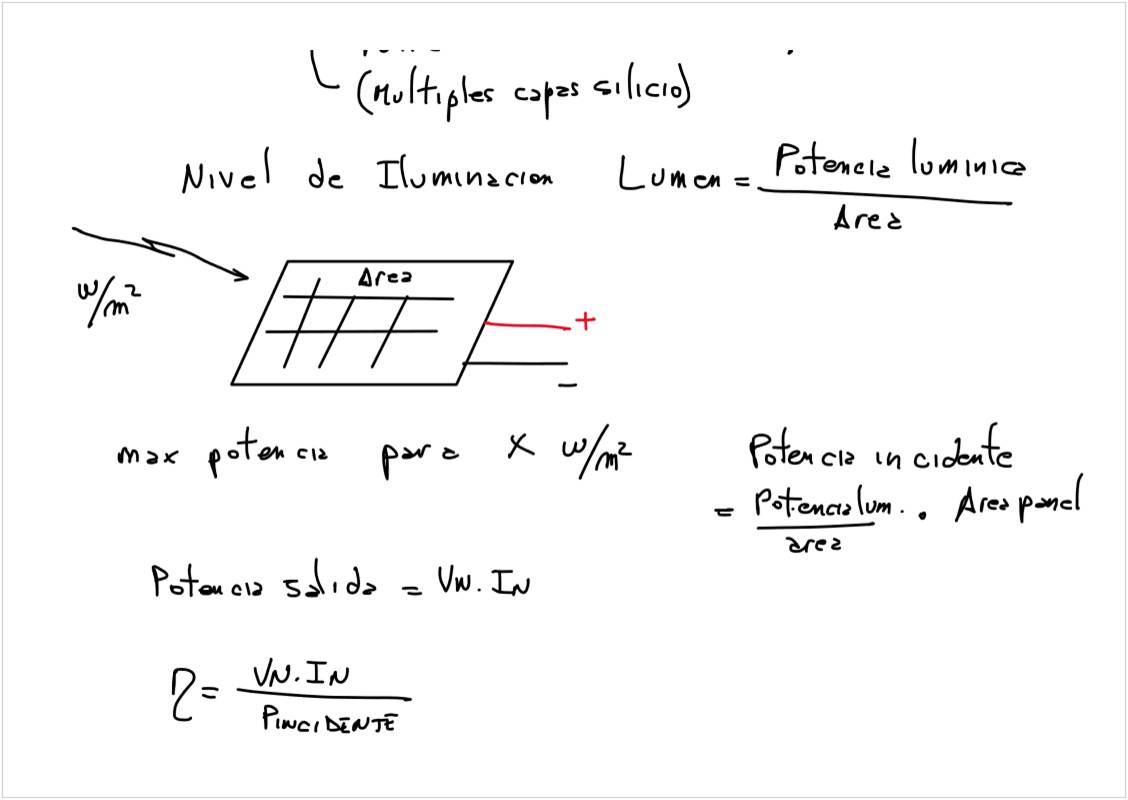 (Multiples capas silicio)
Nivel de Iluminacion Lumen = Potencia luminica
Area
Area
+
w/m²
-
max potencia para X w/m²
Potencia incidente
= Potencia lum. . Area panel
area
Potencia salida = VN. IN
η = VN. IN
PINCIDENTE